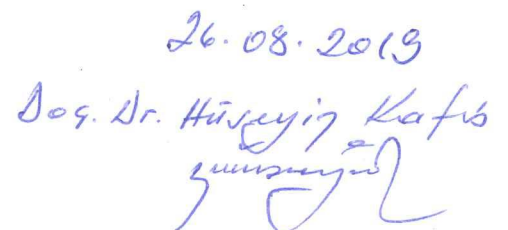 26.08.2019
Doç. Dr. Hüseyin Kafes